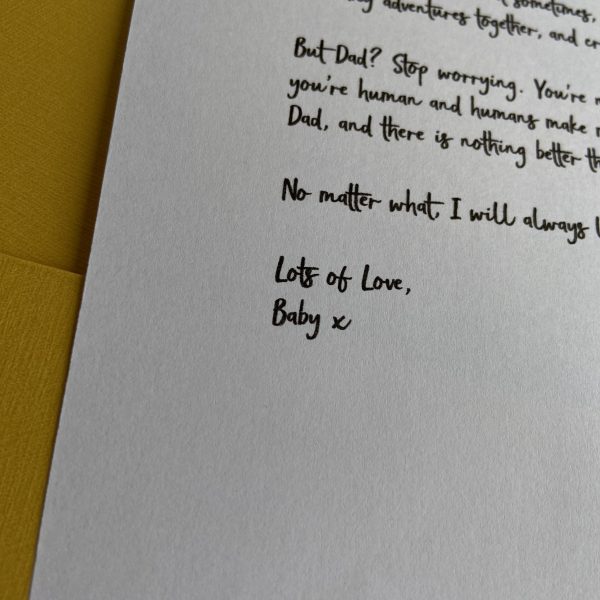 sometimes,
adventures together, and
But Dad? Stop worrying. You're
you're human and humans make
Dad, and there is nothing better
No matter what, I will always
Lots of Love,
Baby x